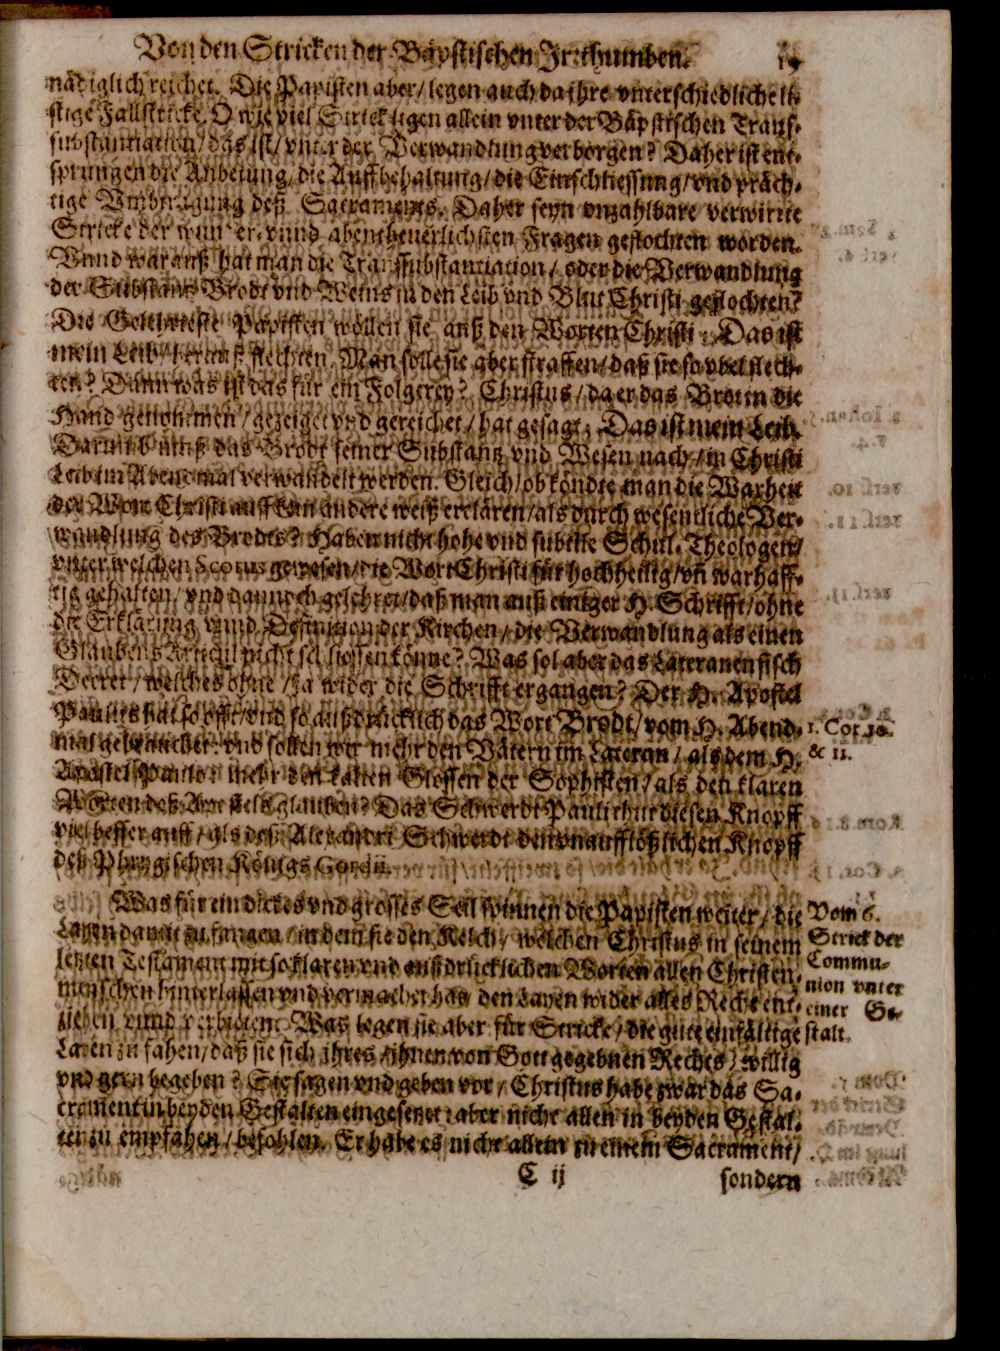 Von den Stricken der Bäpstischen Jrrthumben.
nädiglich reichet. Die Papisten aber/ legen auch da jhre vnterschiedliche li-
stige Fallstricke. O wie viel Strick ligen allein vnter der Bäpstischen Trans-
substantiation/ das ist/ vnter der Verwandlung verborgen? Daher ist ent-
sprungen die Anbetung/ die Auffbehaltung/ die Einschliessung/ vnd präch-
tige Vmbtragung deß Sacraments. Daher seyn vnzahlbare verwirrte
Stricke der wundervnnd abentheuerlichsten Fragen geflochten worden.
Vnnd warauß hat man die Transsubstantiation/ oder die Verwandlung
der Substantz Brodt vnd Weins in den Leib vnd Blut Christi geflochten?
Die Gelehrteste Papisten wöllen sie auß den Worten Christi: Das ist
mein Leib/ herauß flechten. Man solle sie aber straffen/ daß sie so vbel flech-
ten? Dann was ist das für ein Folgerey? Christus/ da er das Brot in die
Hand genommen/ gezeiget vnd gereichet/ hat gesagt: Das ist mein Leib.
Darumb muß das Brodt seiner Substantz vnd Wesen nach/ in Christi
Leib im Abendmal verwandelt werden. Gleich/ ob köndte man die Warheit
der Wort Christi auff kein andere weiß erclären/ als durch wesentliche Ver-
wandlung des Brodts? Haben nicht hohe vnd subtile Schul-Theologen/
vnter welchen Scotus gewesen/ die Wort Christi für hochheilig/ vñ warhaff-
tig gehalten/ vnd dannoch gelehret/ daß man auß einiger H. Schrifft/ ohne
die Erklärung vnnd Definition der Kirchen/ die Verwandlung als einen
Glaubens Articul nicht schliessen könne? Was sol aber das Lateranensisch
Decret/ welches ohne/ ja wider die Schrifft ergangen? Der H. Apostel
Paulus hat so offt/ vnd so außdrücklich das Wort Brodt/ vom H. Abend-
mal gebrauchet: vnd sollen wir mehr den Vätern im Lateran/ als dem H.
Apostel Paulo: mehr den kalten Glossen der Sophisten/ als den klaren
Worten deß Apostels glauben? Das Schwerdt Pauli thut diesen Knopff
viel besser auff/ als deß Alexandri Schwerdt den vnaufflößlichen Knopff
deß Phrygischen Königs Gordii.
1. Cor. 10.
& 11.
Was für ein dickes vnd grosses Seil spinnen die Papisten weiter/ die
Layen damit zu fangen/ in dem sie den Kelch/ welchen Christus in seinem
letzten Testament mit so klaren vnd außdrücklichen Worten allen Christen-
menschen hinterlassen vnd vermachet hat/ den Layen wider alles Recht ent-
ziehen vnnd verbieten? Was legen sie aber für Stricke/ die gute einfältige
Layen zu fahen/ daß sie sich jhres/ jhnen von Gott gegebnen Rechts/ willig
vnd gern begeben? Sie sagen vnd geben vor/ Christus habe zwar das Sa-
crament in beyden Gestalten eingesetzet: aber nicht allen in beyden Gestal-
ten zu empfahen/ befohlen. Er habe es nicht allein zu einem Sacrament/
Vom 6.
Strick der
Commu-
nion vnter
einer Ge-
stalt.
C ij
sondern